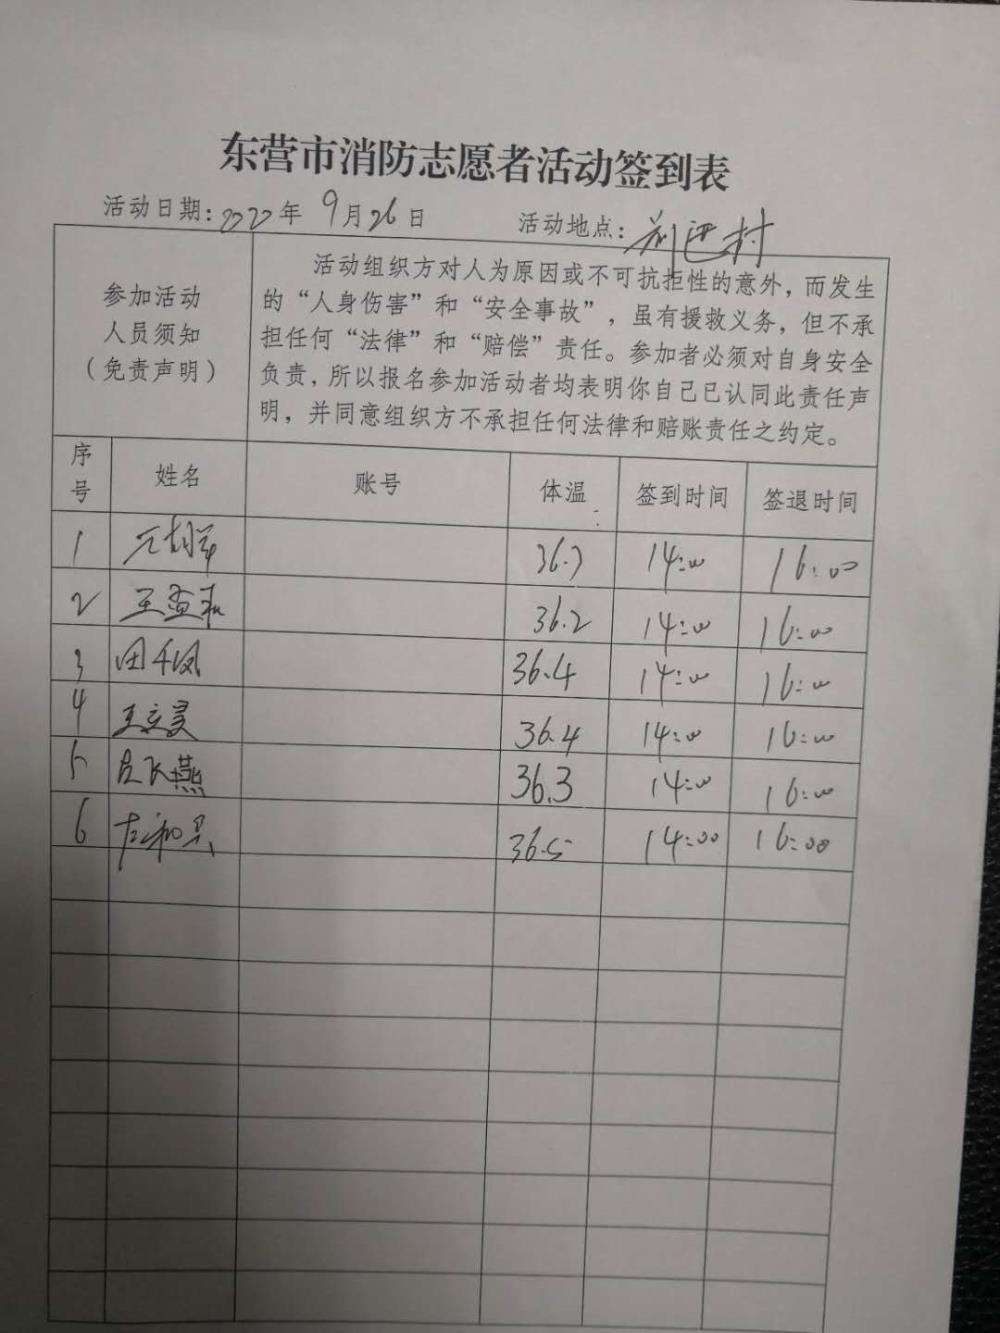 东营市消防志愿者活动签到表
活动日期：2020年 9月26日 活动地点： 村
参加活动
人员须知
（免责声明）
活动组织方对人为原因或不可抗拒性的意外，而发生
的“人身伤害”和“安全事故”，虽有援救义务，但不承
担任何“法律”和“赔偿”责任。参加者必须对自身安全
负责，所以报名参加活动者均表明你自己已认同此责任声
明，并同意组织方不承担任何法律和赔账责任之约定。
序号 姓名 账号 体温 签到时间 签退时间
1 36.3 14:00 16:00
2 王 36.2 14:00 16:00
3 田千凤 36.4 14:00 16:00
4 王立 36.4 14:00 16:00
5 飞燕 36.3 14:00 16:00
6 36.5 14:00 16:00